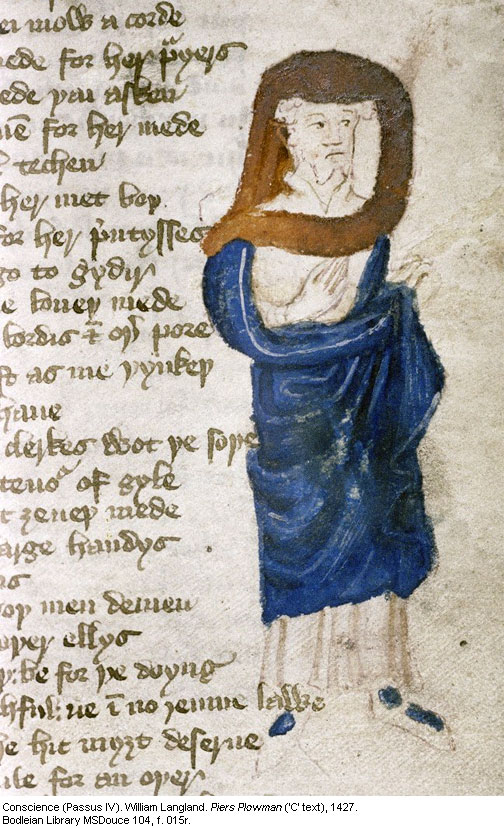 mow a corde
mede for her p̃yers
mede þay asken
for her mede
techen
her met boþ
for her p̃ntysses
go to gydir
mede
bordis & oþ pore
as me þynkeþ
haue
clerkes wot þe soþe
of gyle
ȝeueþ mede
large handys

men demen
oþer ellys
be for þe doyng
ne ī no lawe
he hit myȝt deserue
while for an oþer
Conscience (Passus IV). William Langland. Piers Plowman ('C' text), 1427.
Bodleian Library MSDouce 104, f. 015r.